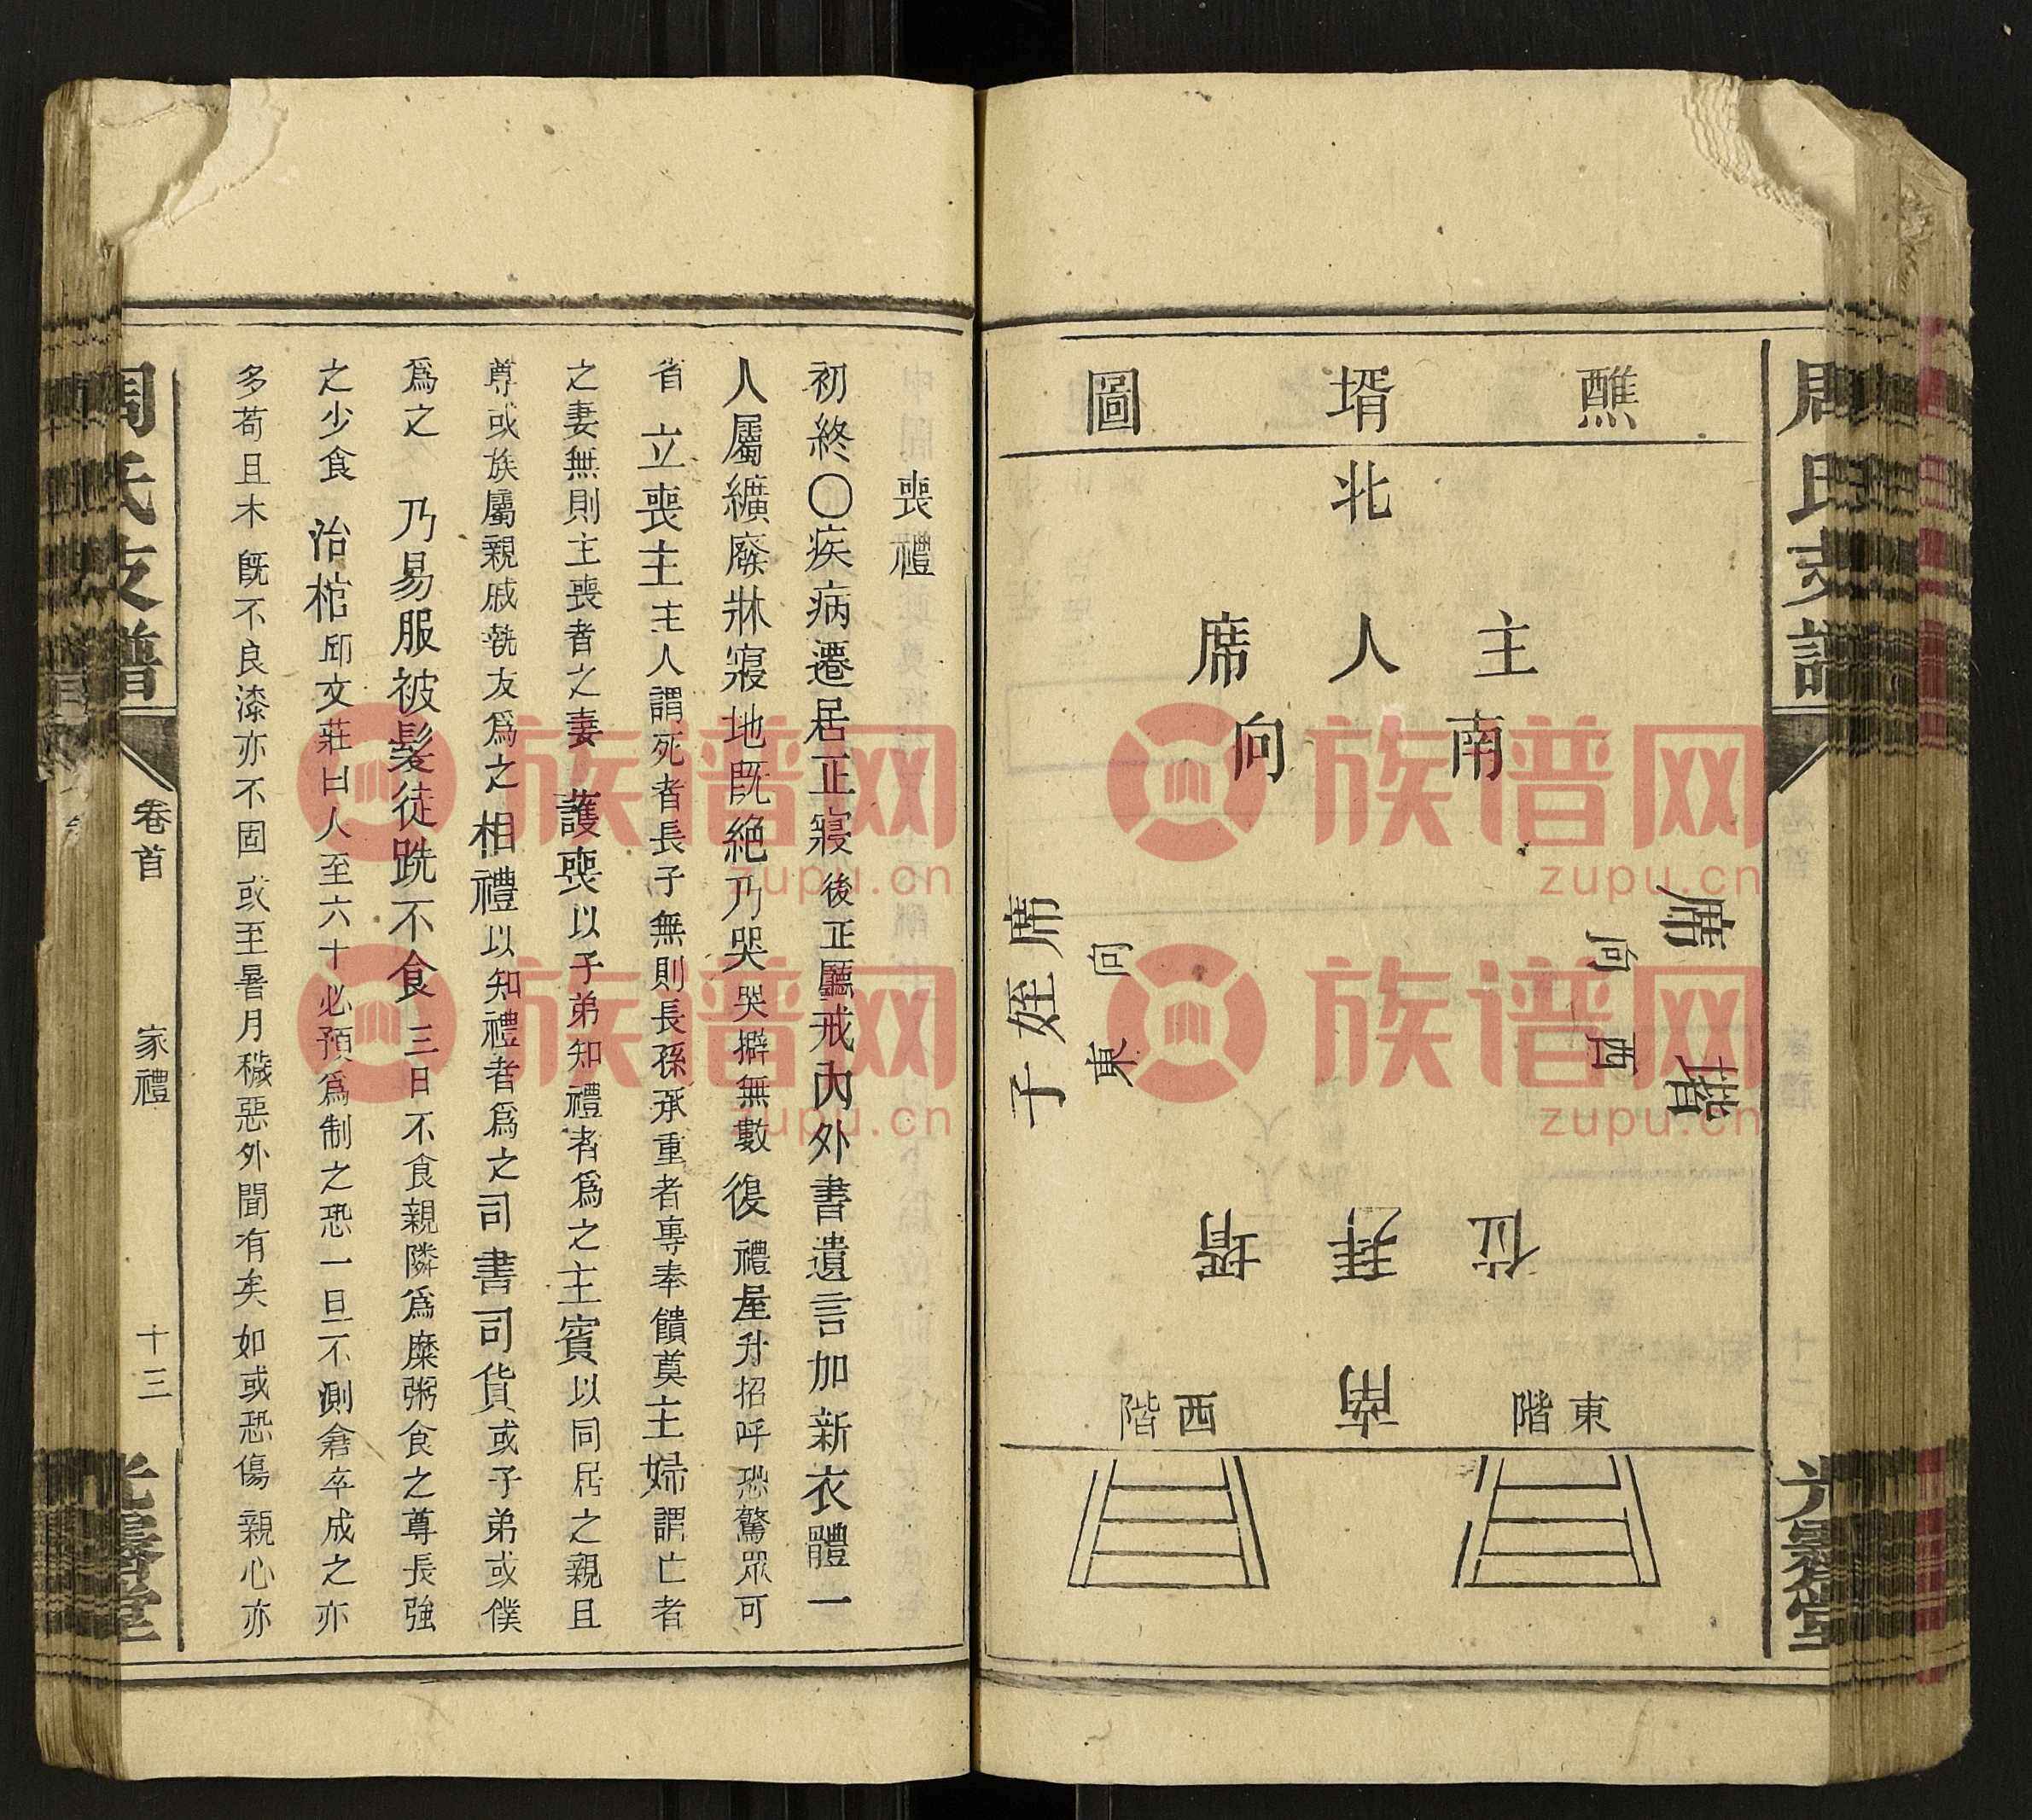 周氏支譜
醮壻圖
北
主人席
南向
席
壻
西向
席
姪
子
東向
壻拜位
南
東階
西階
喪禮
初終〇疾病遷居正寢後正廳戒內外書遺言加新衣體一
人屬纊廢牀寢地旣絕乃哭哭擗無數復禮屋升招呼恐驚眾可
省立喪主主人謂死者長子無則長孫承重者專奉饋奠主婦謂亡者
之妻無則主喪者之妻護喪以子弟知禮者爲之主賓以同居之親且
尊或族屬親戚執友爲之相禮以知禮者爲之司書司貨或子弟或僕
爲之乃易服被髮徒跣不食三日不食親隣爲糜粥食之尊長強
之少食治棺邱文莊曰人至六十必預爲制之恐一旦不測倉卒成之亦
多苟且木旣不良漆亦不固或至暑月穢惡外聞有矣如或恐傷親心亦
周氏支譜
卷首
家禮
十三
族谱网
zupu.cn
族谱网
zupu.cn
族谱网
zupu.cn
族谱网
zupu.cn